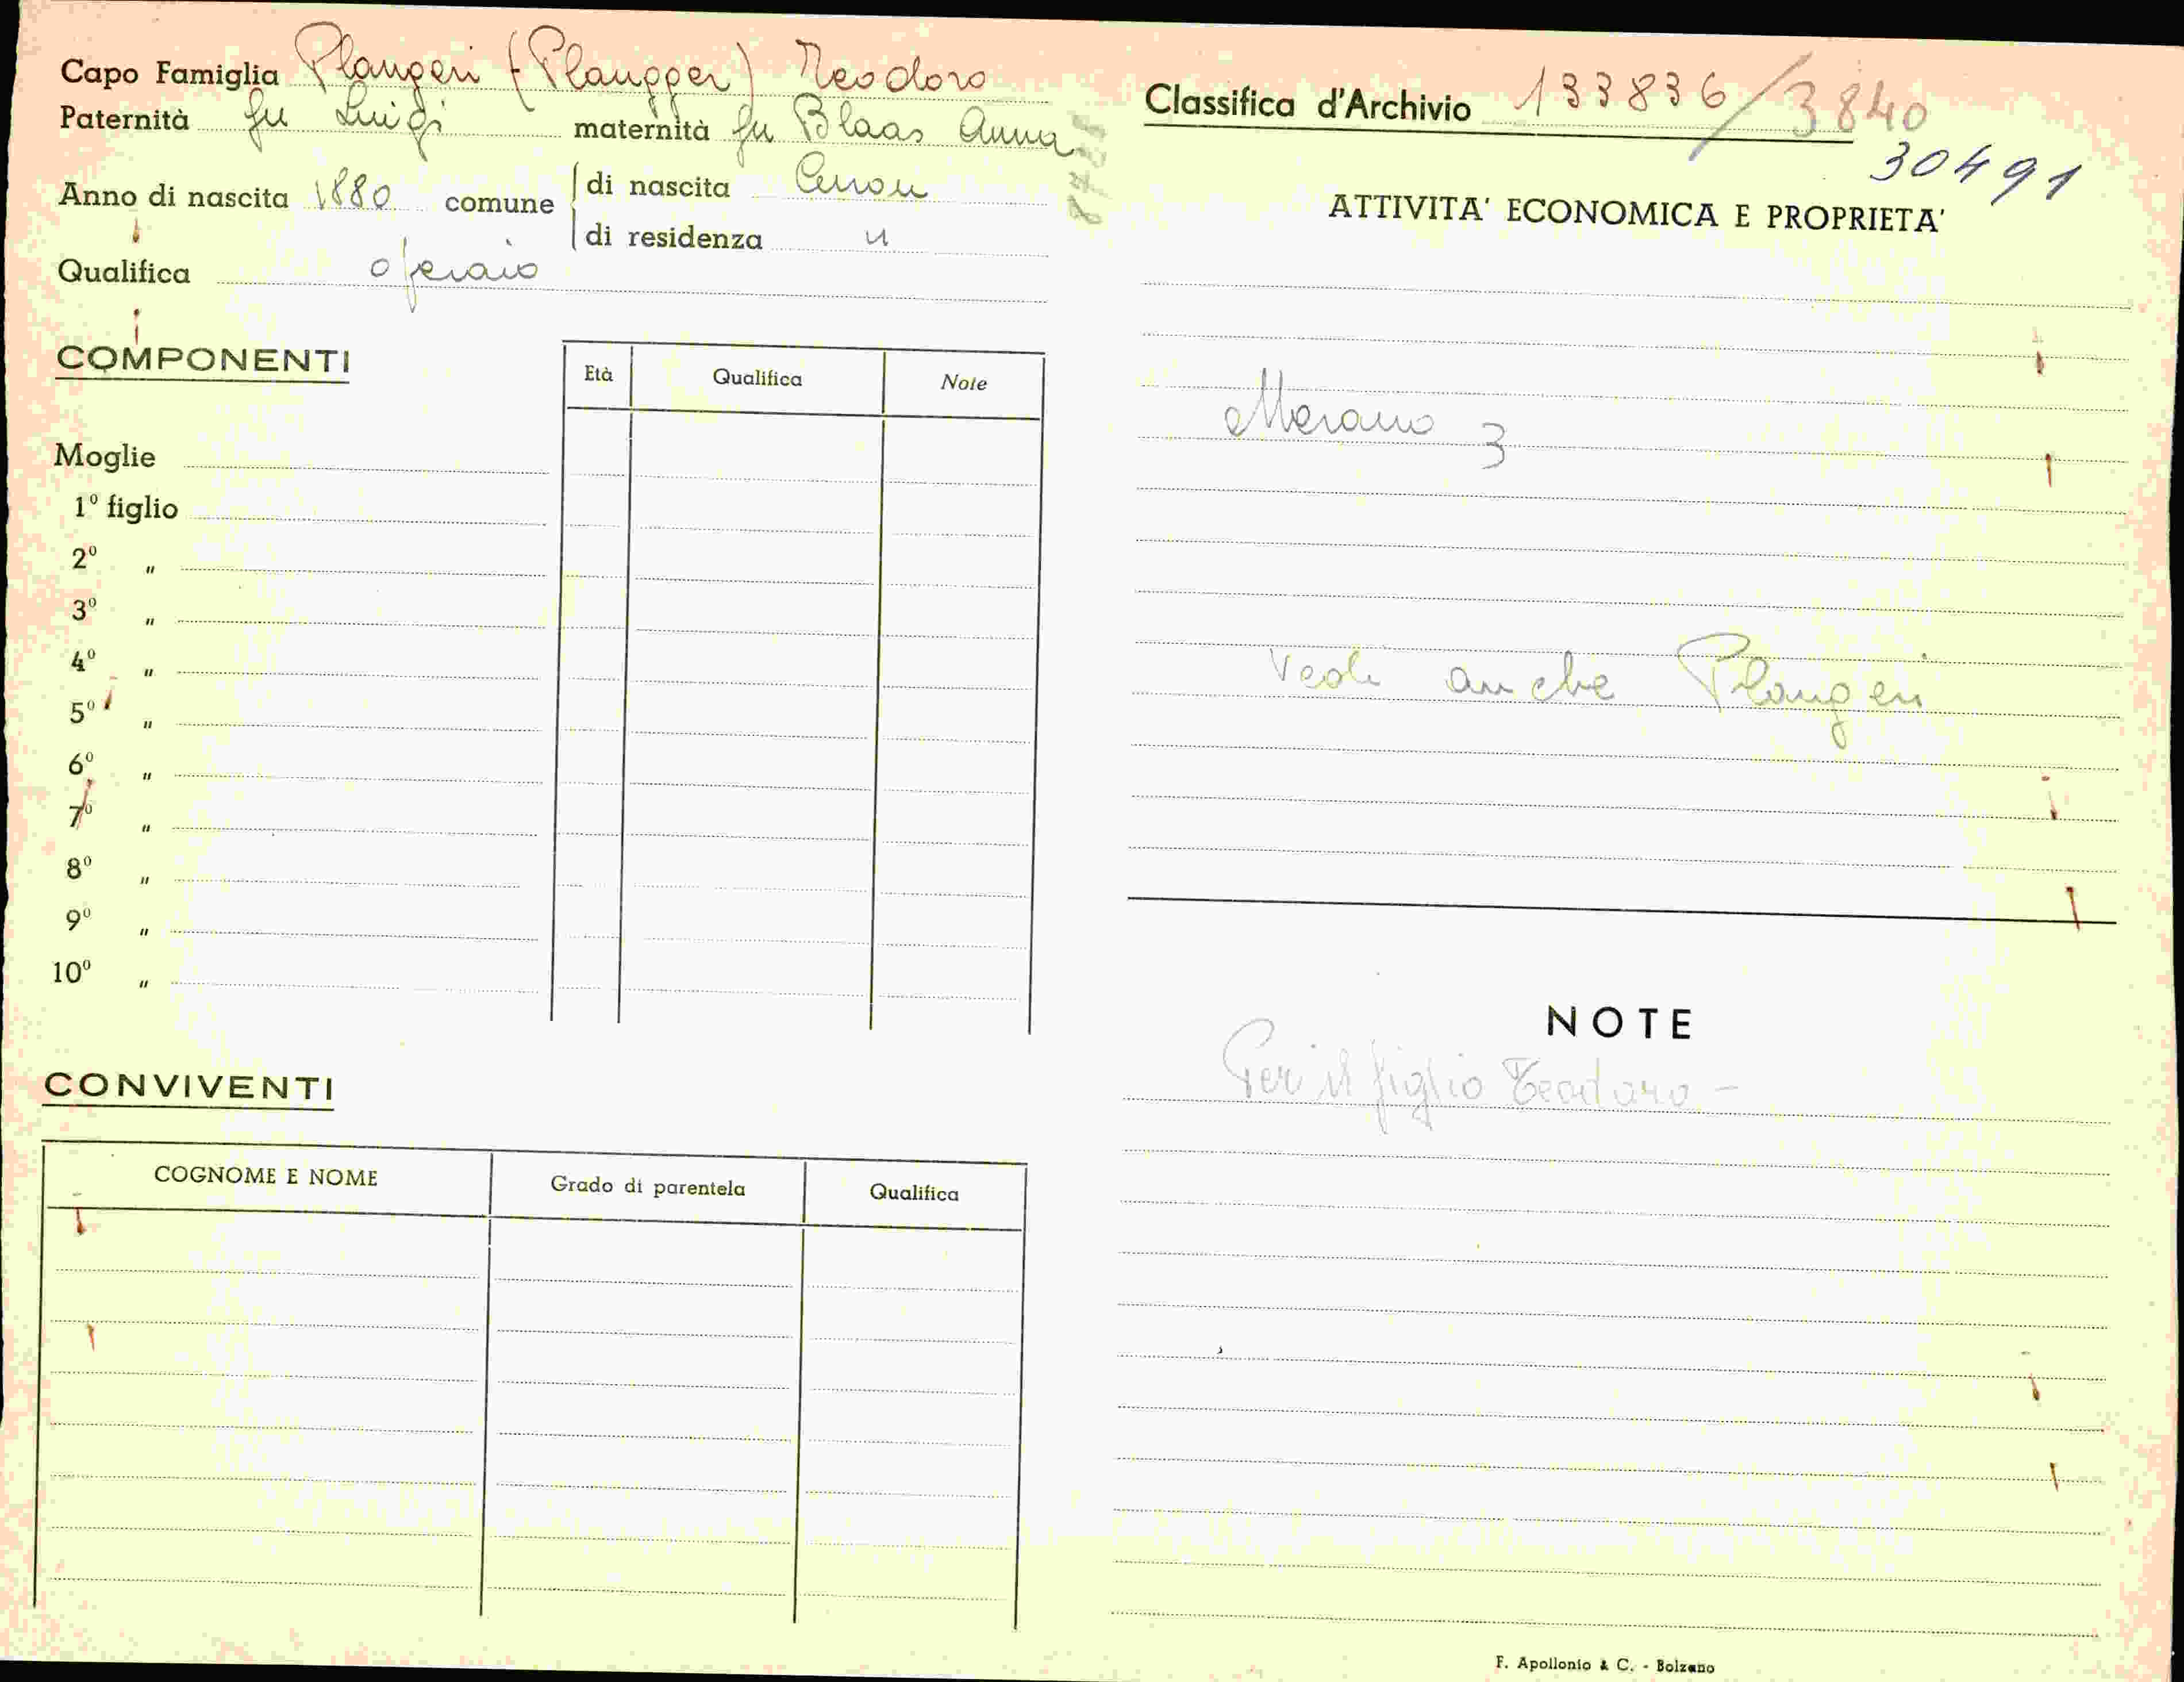 Capo Famiglia Plangeri (Plangger) Teodoro
Paternità fu Luigi maternità fu Blaas Anna
Anno di nascita 1880 comune di nascita Curon
di residenza "
Qualifica operaio
COMPONENTI
Età Qualifica Note
Moglie
1º figlio
2º "
3º "
4º "
5º "
6º "
7º "
8º "
9º "
10º "
CONVIVENTI
COGNOME E NOME Grado di parentela Qualifica
Classifica d'Archivio 133836/3840
30491
ATTIVITA' ECONOMICA E PROPRIETA'
Merano 3
Vedi anche Plangeri
NOTE
Per il figlio Teodoro -
F. Apollonio & C. - Bolzano